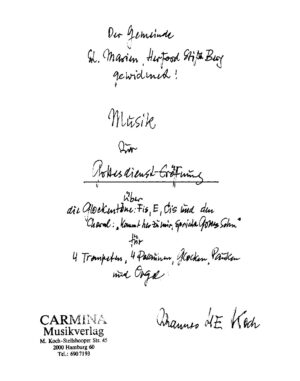 Der Gemeinde
St. Marien, Herford Stift Berg
gewidmet!
Musik
zur
Gottesdienst-Eröffnung
über
die Glockentöne: Fis, E, Cis und den
Choral: „Kommt her zu mir, spricht Gottes Sohn"
für
4 Trompeten, 4 Posaunen, Glocken, Pauken
und Orgel
CARMINA
Musikverlag
M. Koch-Stellshooper Str. 45
2000 Hamburg 60
Tel.: 690 71 93
Johannes H.E. Koch